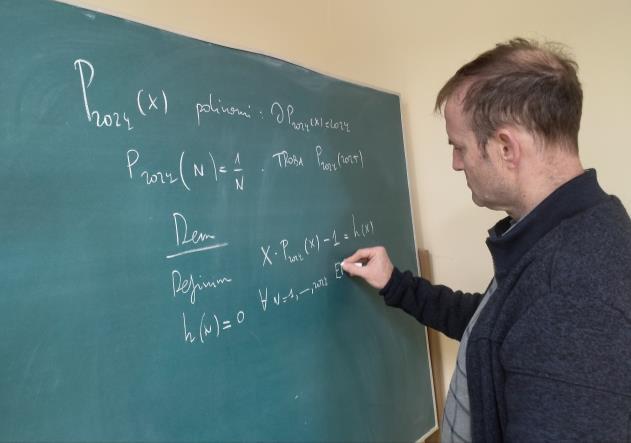 P₂₀₂₄(x) polinomi: ∂P₂₀₂₄(x)=2024
P₂₀₂₄(N)=1/N . TROBA P₂₀₂₄(2025)
Dem
Definim x·P₂₀₂₄(x)-1=h(x)
h(N)=0 ∀N=1,—,2025 E